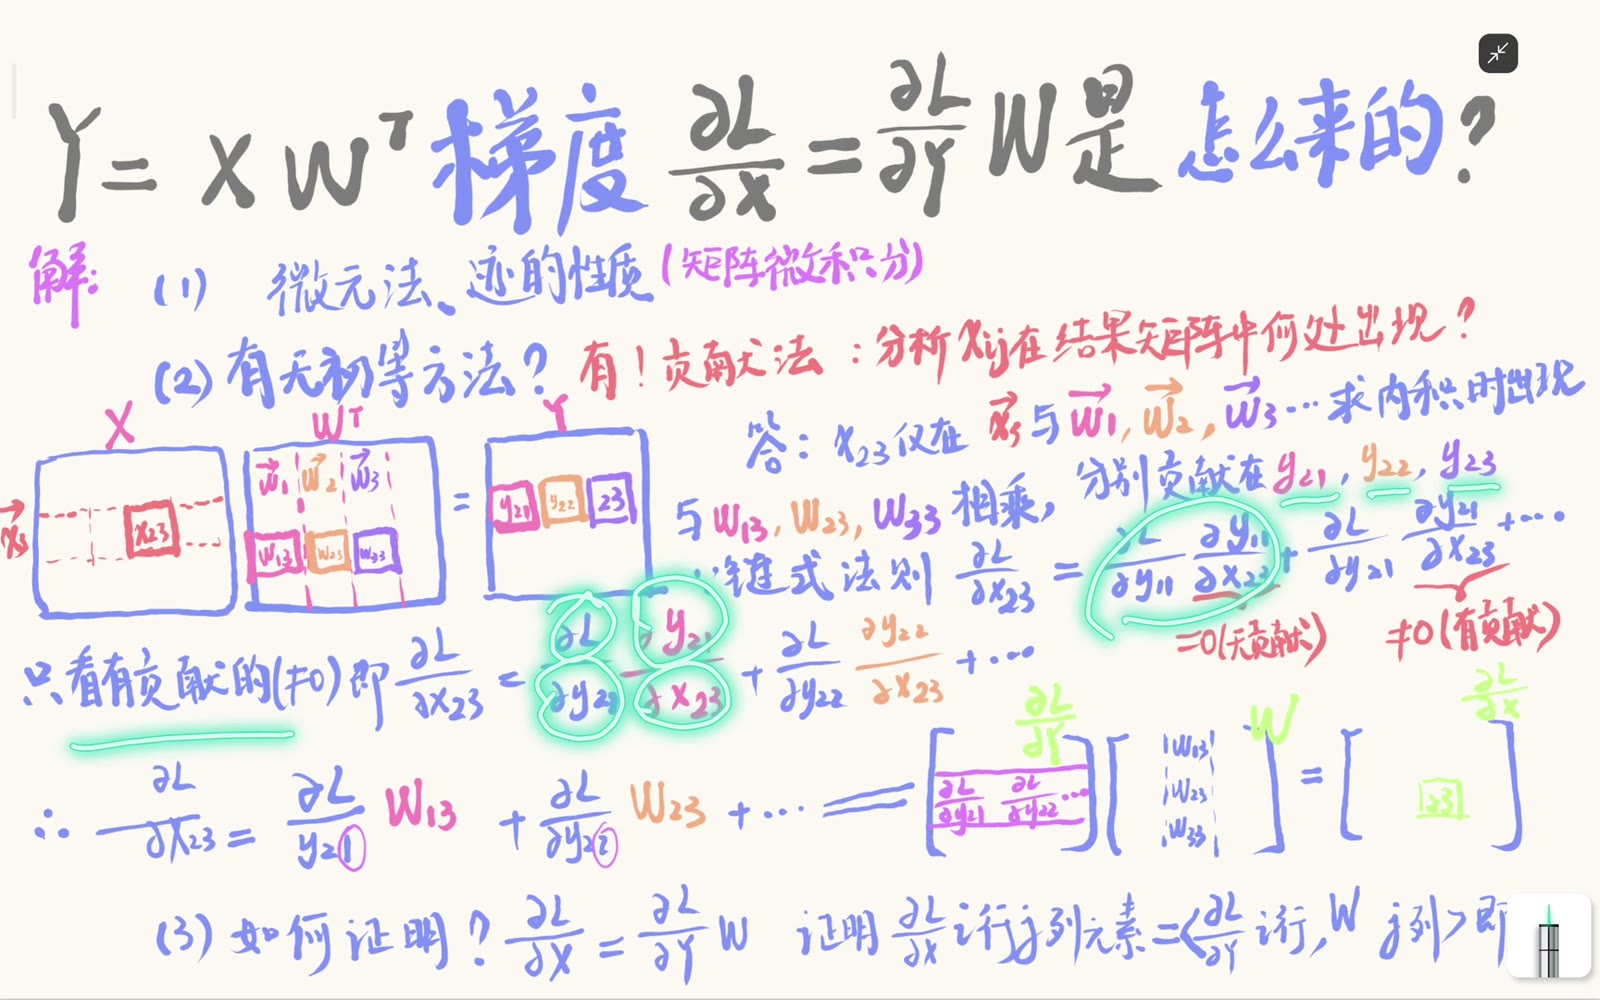 Y = XWᵀ 梯度 ∂L/∂X = ∂L/∂Y W 是怎么来的?
解: (1) 微元法、迹的性质 (矩阵微积分)
(2) 有无初等方法? 有! 贡献法: 分析 Xij 在结果矩阵中何处出现?
X Wᵀ Y
x⃗ x23
w⃗1 w⃗2 w⃗3
w13 w23 w33
=
y21 y22 23
答: x23 仅在 x⃗ 与 w⃗1, w⃗2, w⃗3 … 求内积时出现
与 w13, w23, w33 相乘, 分别贡献在 y21, y22, y23
链式法则 ∂L/∂x23 = ∂L/∂y11 ∂y11/∂x23 + ∂L/∂y21 ∂y21/∂x23 + …
=0(无贡献) ≠0(有贡献)
只看有贡献的(≠0) 即 ∂L/∂x23 = ∂L/∂y21 ∂y21/∂x23 + ∂L/∂y22 ∂y22/∂x23 + …
∂L/∂Y W ∂L/∂X
∴ ∂L/∂x23 = ∂L/y21 W13 + ∂L/∂y22 W23 + … = [∂L/∂y21 ∂L/∂y22 …] [W13 W23 W33] = [23]
(3) 如何证明? ∂L/∂X = ∂L/∂Y W 证明 ∂L/∂X i行j列元素 = <∂L/∂Y i行, W j列> 即